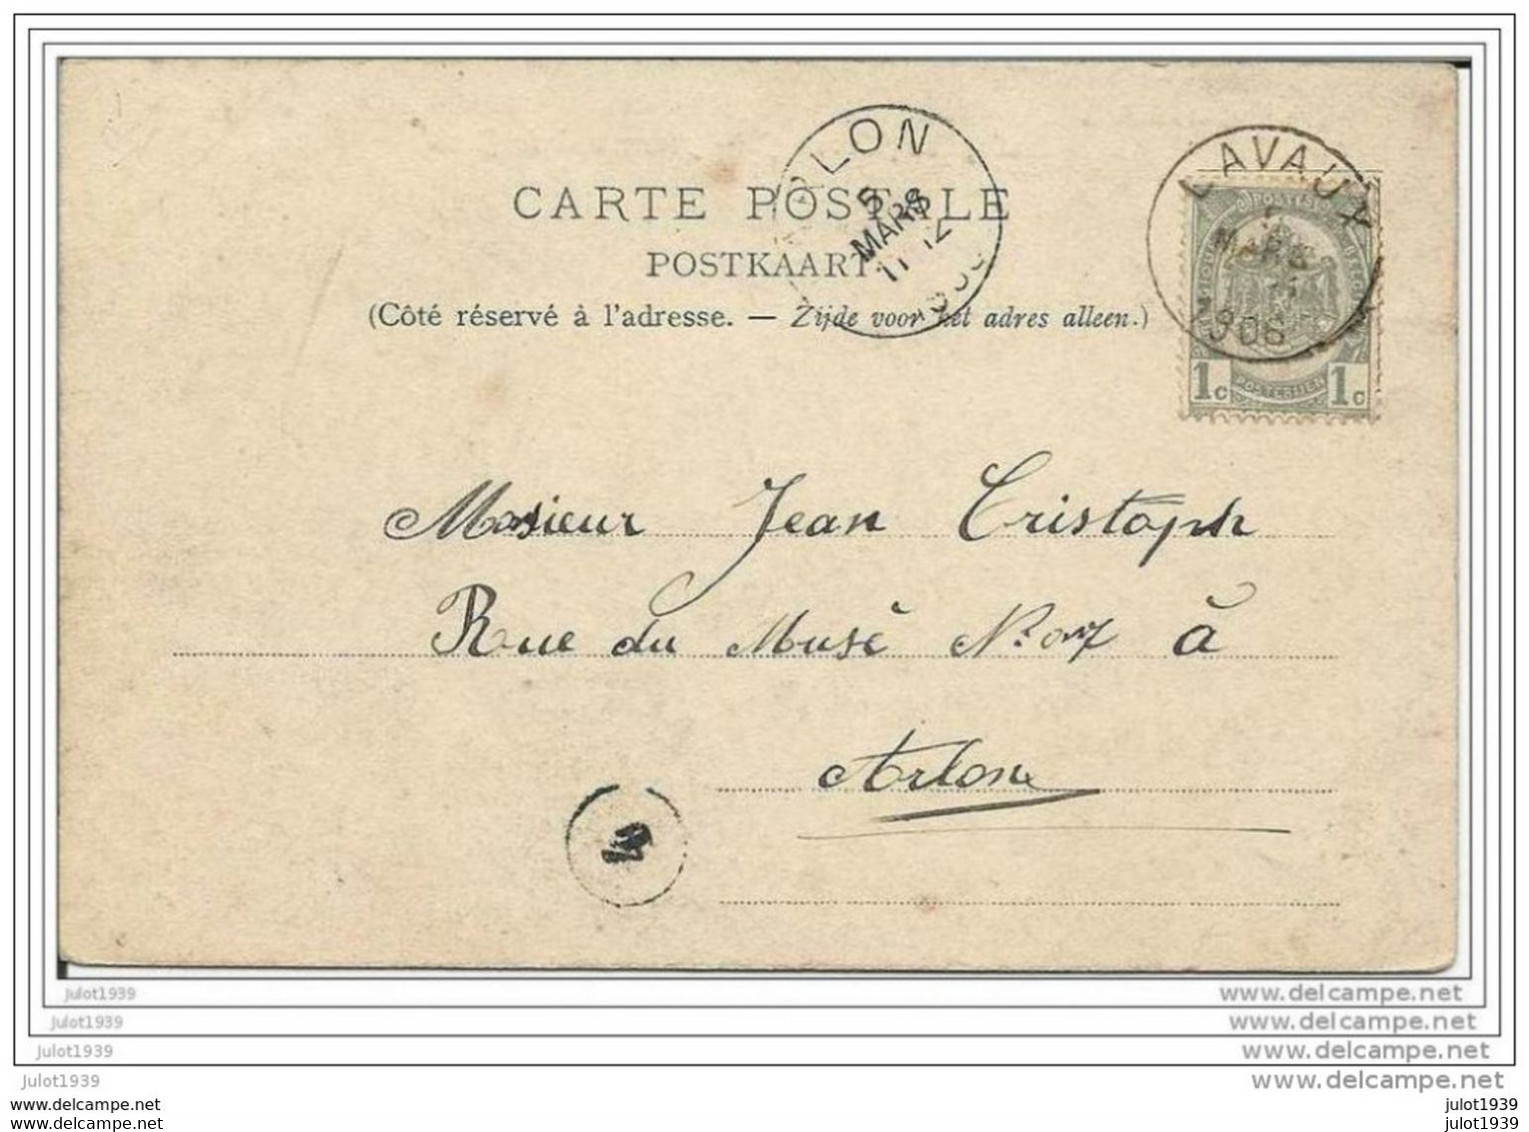 LAVAUX
MARS
1906
ARLON
5
MARS
11-12
CARTE POSTALE
POSTKAART
(Côté réservé à l'adresse. — Zijde voor het adres alleen.)
POSTES
1c POSTERIJEN 1c
Monsieur Jean Cristoph
Rue du Musé N.° à
Arlon
julot1939 www.delcampe.net
julot1939 www.delcampe.net
julot1939 www.delcampe.net
julot1939 www.delcampe.net
www.delcampe.net julot1939
www.delcampe.net julot1939